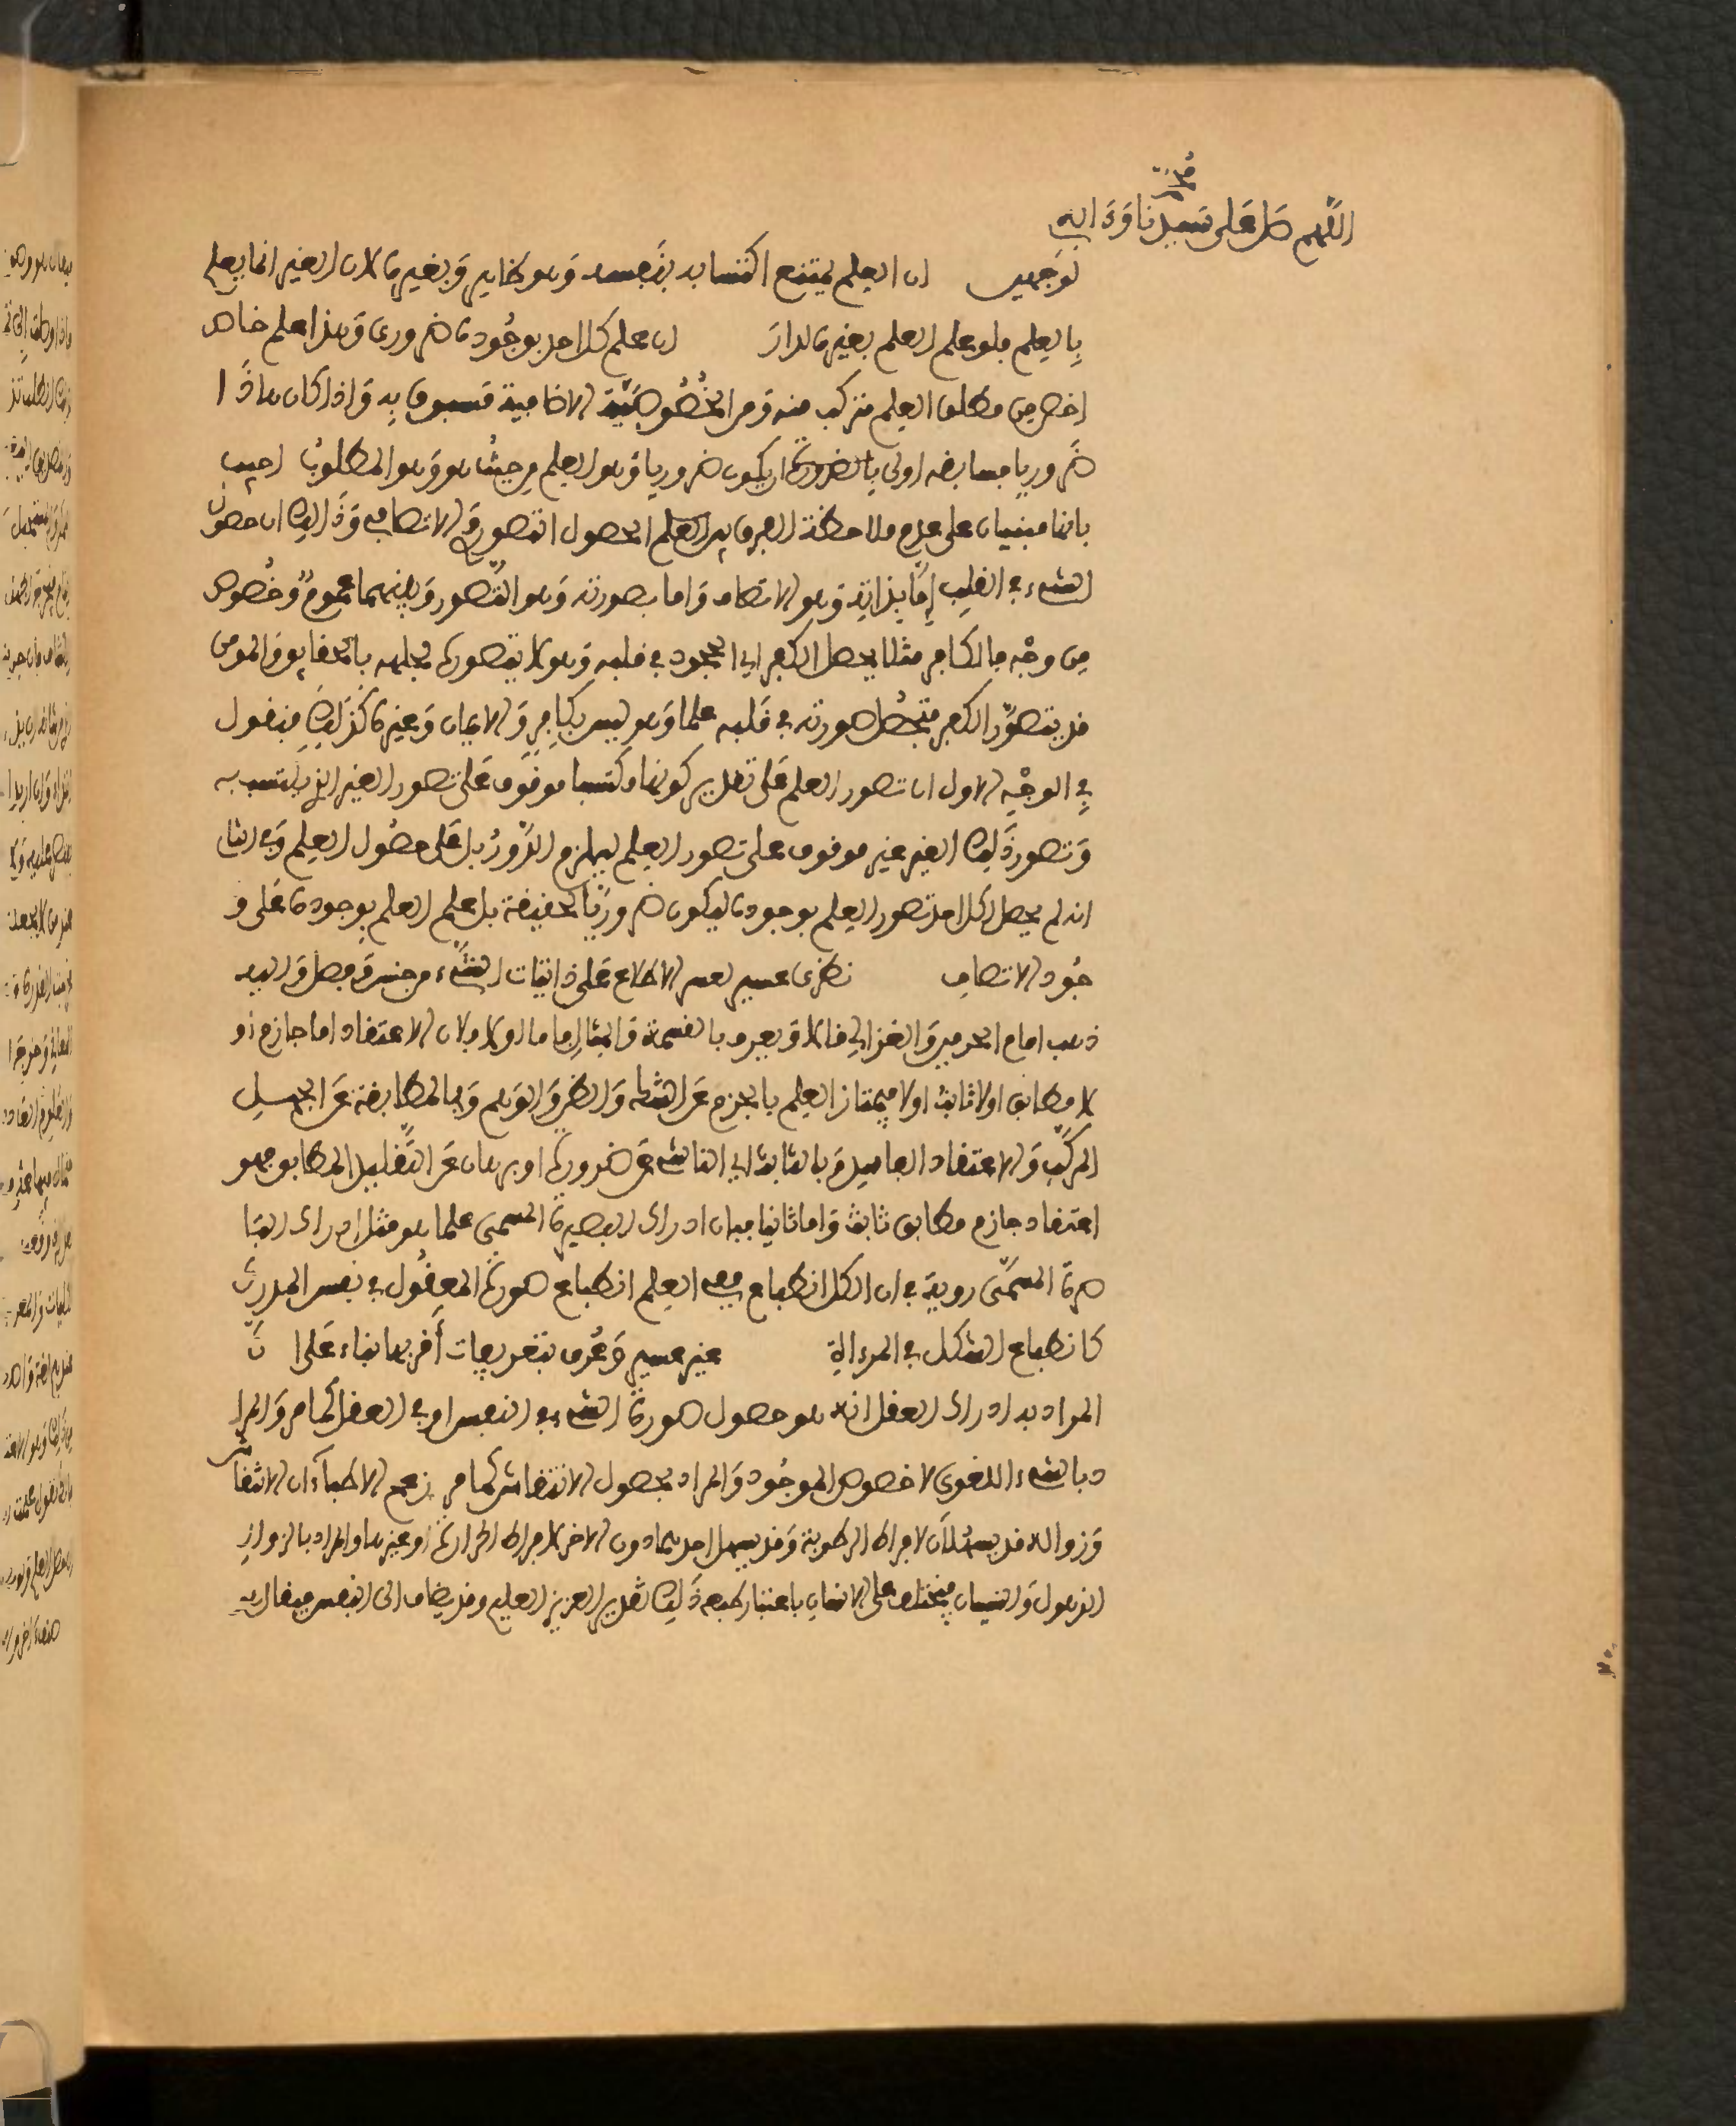 اللهم صل على سيدنا محمد وءاله
لوجهين ان العلم يمتنع اكتسابه بنفسه وهو ظاهر وبغيره لان الغير انما يعلم
بالعلم فلو علم العلم بغيره لدار ان علم كل احد بوجوده ضروري وهذا علم خاص
اخص من مطلق العلم متركب منه ومن الخصوصية الاضافية مسبوق به واذا كان هاذا
ضروريا فسابقه اولى بالضرورة ان يكون ضروريا وهو العلم من حيث هو وهو المطلوب اجيب
بانها مبنيان على عدم ملاحظة الفرق بين العلم الحصول التصور والاتصاف وذلك ان حصول
الشيء في القلب إما بذاته وهو الاتصاف واما بصورته وهو التصور وبينهما عموم وخصوص
من وجه فالكافر مثلا يحصل الكفر اي الجحود في قلبه وهو لا يتصوره لجهله بالحقايق والمومن
قد يتصور الكفر فتحصل صورته في قلبه علما وهو ليس بكافر والايمان وغيره كذلك فنقول
في الوجه الاول ان تصور العلم على تقدير كونه مكتسبا موقوف على تصور الغير الذي يكتسب به
وتصور ذلك الغير غير موقوف على تصور العلم ليلزم الدور بل على حصول العلم وفي الثا
انه لم يحصل لكل احد تصور العلم بوجوده ليكون ضروريا لحقيقة بل علم العلم بوجوده على و
جود الاتصاف نظري عسير لعسر الاطلاع على ذاتيات الشيء من جنس وفصل واليه
ذهب امام الحرمين والغزالي قالا ويعرف بالقسمة والمثال اما الاولا فلان الاعتقاد اما جازم او
لا مطابق اولا ثابت اولا فيمتاز العلم بالجزم عن الشك والظن والوهم وبالمطابقة عن الجهل
المركب والاعتقاد الفاسد وبالثابت اي الناشئ عن ضرورة او برهان عن التقليد المطابق فهو
اعتقاد جازم مطابق ثابت واما ثانيا فبان ادراك البصيرة المسمى علما هو مثل ادراك البا
صرة المسمى روية في ان الكل انطباع فمعنى العلم انطباع صورة المعقول في نفس المدرك
كانطباع الشكل في المرءاة غير عسير وعرف بتعريفات أقربها بناء على ان
المراد به ادراك العقل انه هو حصول صورة الشيء في النفس او في العقل كما مر والمرا
د بالشيء اللغوي لا خصوص الموجود والمراد بحصول الانتقاش كما مر زعم الاطباء ان الانتقاش
وزواله قد يسهلان لافراط الرطوبة وقد يسهل احدهما دون الاخر لافراط الحرارة او غيرها والمراد بالزوال
الذهول والنسيان فيختلف على الانسان باعتبار طبعه ذلك تقدير العزيز العليم وقد يضاف الى النفس فيقال